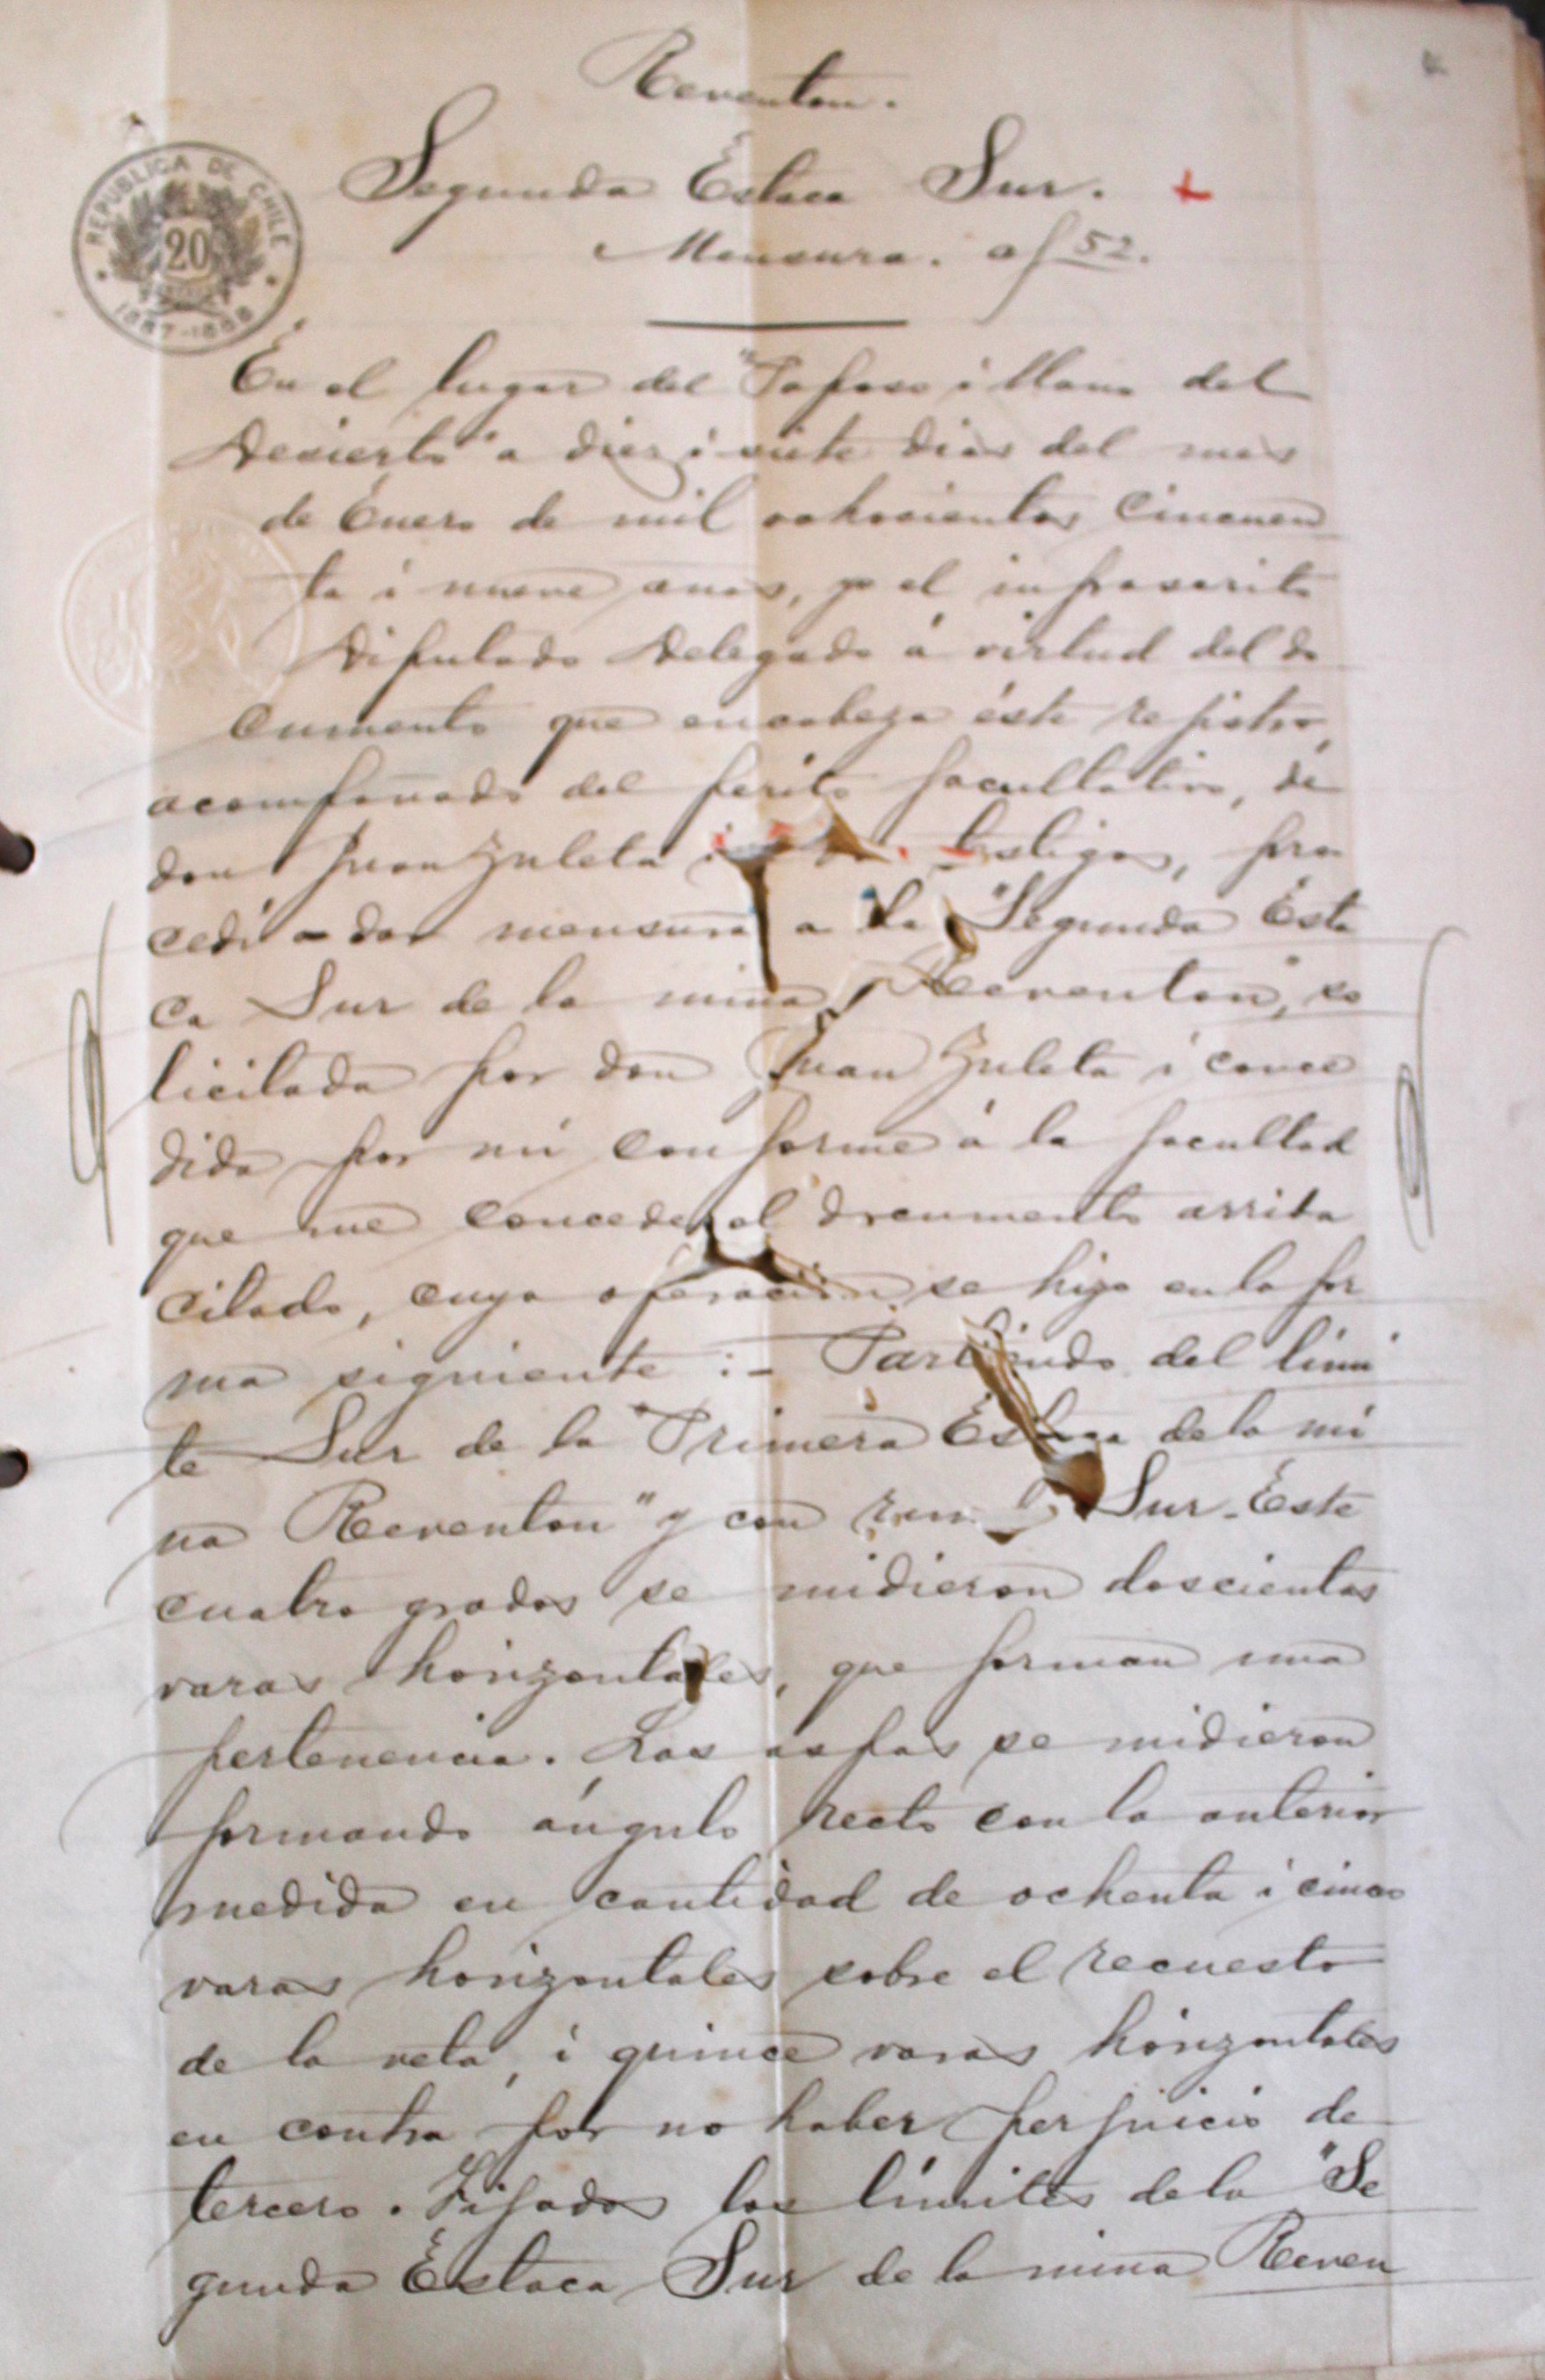 Reventon.
Segunda Estaca Sur. +
Mensura. af 52.
REPUBLICA DE CHILE
20
1887-1888
En el lugar del "Paposo i llano del
Desierto" a diez i siete dias del mes
de Enero de mil ochocientos Cincuen
ta i nueve anos, yo el infrascrito
Diputado Delegado á virtud del do
cumento que encabeza éste rejistro,
acompañado del perito facultativo, de
don Juan Zuleta i testigos, pro
cedí a dar mensura a la "Segunda Esta
ca Sur de la mina Reventon", so
licitada por don Juan Zuleta i conce
dida por mi conforme á la facultad
que me concede el documento arriba
citado, cuya operacion se hizo en la for
ma siguiente :- Partiendo del limi
te Sur de la "Primera Estaca de la mi
na Reventon" y con rumbo Sur-Este
cuatro grados se midieron doscientas
varas horizontales, que forman una
pertenencia. Las aspas se midieron
formando ángulo recto con la anterior
medida en cantidad de ochenta i cinco
varas horizontales sobre el recuesto
de la veta, i quince varas horizontales
en contra por no haber perjuicio de
tercero. Fijados los límites de la "Se
gunda Estaca Sur de la mina Reven